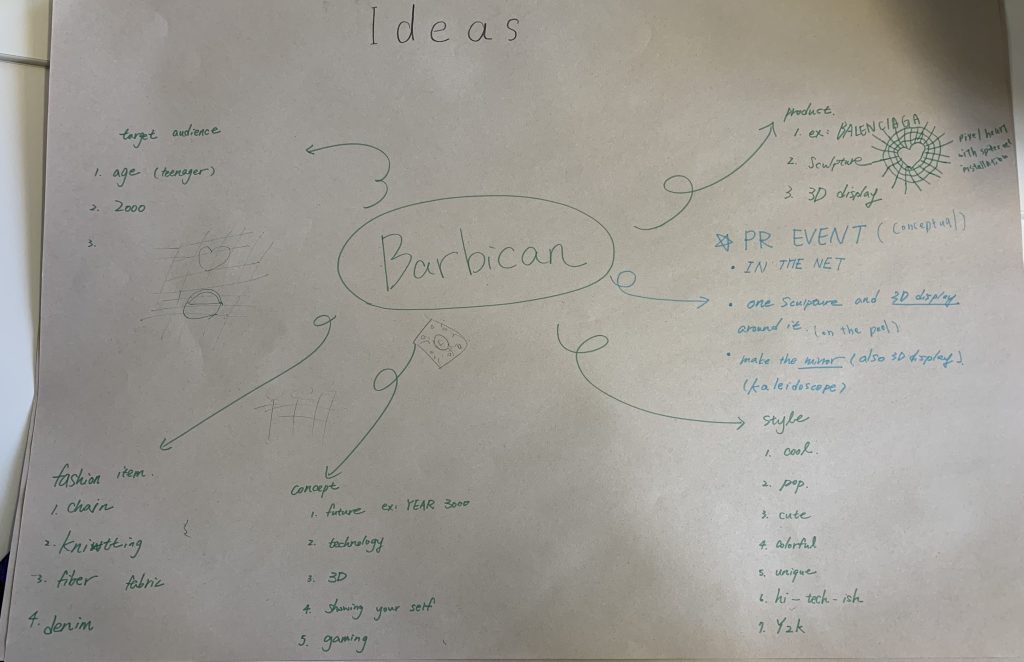 Ideas
target audience
1. age (teenager)
2. 2000
3.
Barbican
product.
1. ex: BALENCIAGA
2. Sculpture
3. 3D display
pixel heart
with spider net
installation
☆ PR EVENT (conceptual)
• IN THE NET
• one Sculpture and 3D display
around it. (on the pool)
• make the mirror (also 3D display)
(kaleidoscope)
style
1. cool.
2. pop.
3. cute
4. colorful
5. unique
6. hi-tech-ish
7. Y2k
concept
1. future ex: YEAR 3000
2. technology
3. 3D
4. showing your self
5. gaming
fashion item.
1. chain
2. knitting
3. fiber fabric
4. denim